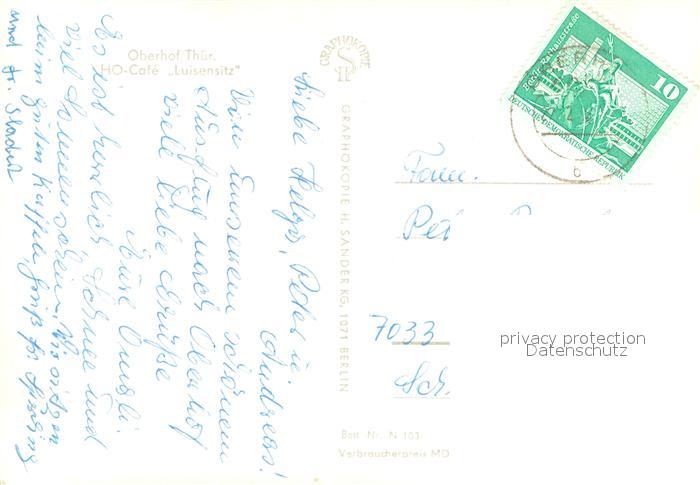 Oberhof Thür.
HO-Café „Luisensitz"
Liebe Helga, Peter u.
Andreas!
Von unserem schönen
Ausflug nach Oberhof
viele liebe Grüße
Eure Omsli.
Es ist herrlich, Schnee und
viel Sonnenschein. Wir sitzen
beim guten Kaffee. Gruß
und Fr.
GRAPHOKOPIE
GRAPHOKOPIE H. SANDER KG, 1071 BERLIN
10
DEUTSCHE DEMOKRATISCHE REPUBLIK
b
Fam.
Pet
7033
privacy protection
Datenschutz
Best. Nr. N 103
Verbraucherpreis MD